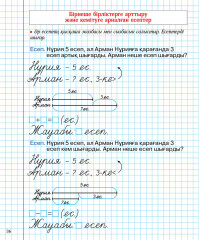 Бірнеше бірліктерге арттыру
және кемітуге арналған есептер
Есеп. Нұрия 5 есеп, ал Арман Нұрияға қарағанда 3
есеп артық шығарды. Арман неше есеп шығарды?
Нұрия – 5 ес.
Арман – ? ес., 3-ке>
5 ес.
Нұрия
Арман
3 ес.
? ес.
+ = (ес.)
Жауабы есеп.
Есеп. Нұрия 5 есеп, ал Арман Нұрияға қарағанда 3
есеп кем шығарды. Арман неше есеп шығарды?
Нұрия – 5 ес.
Арман – ? ес., 3-ке<
5 ес.
Нұрия
Арман
? ес.
3 ес.
– = (ес.)
Жауабы есеп.